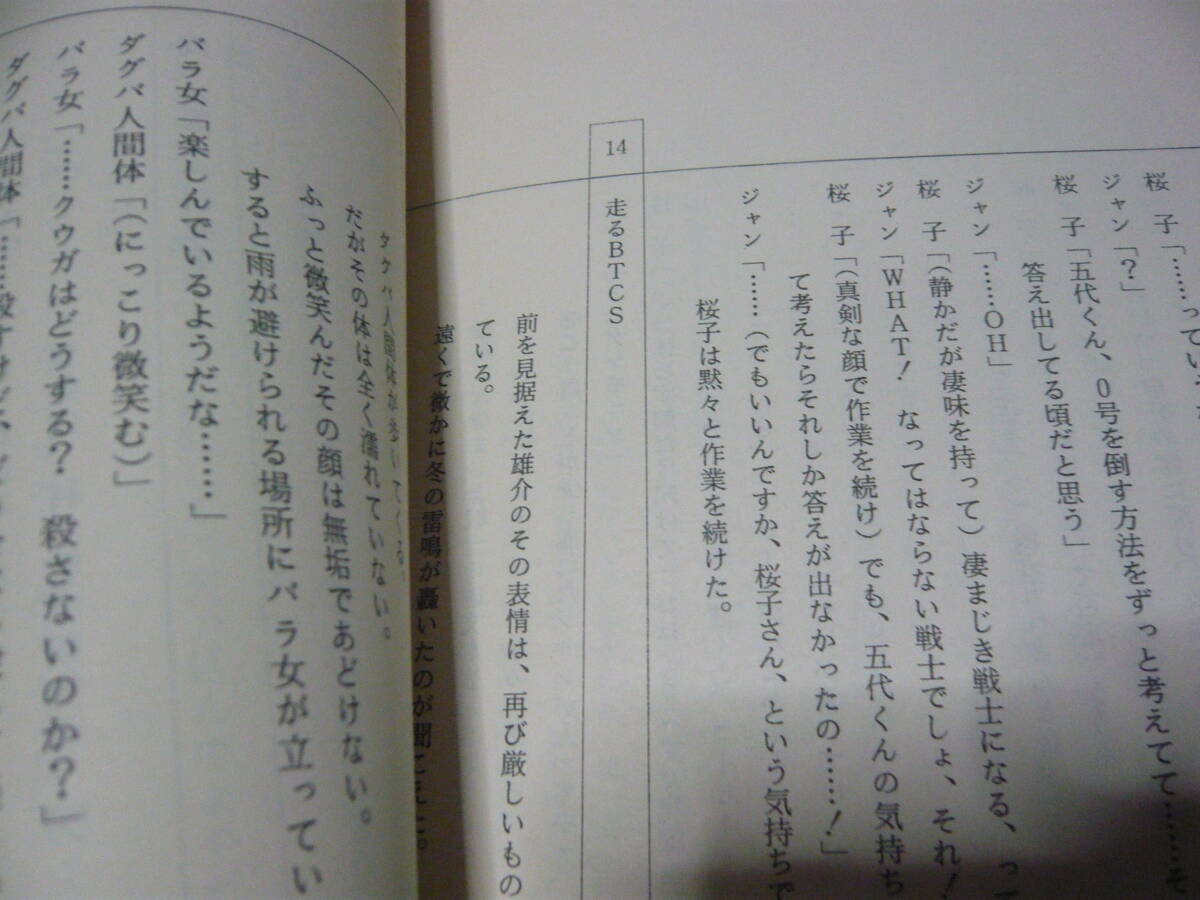 桜　子「……ってい
ジャン「？」
桜　子「五代くん、０号を倒す方法をずっと考えてて……そ
答え出してる頃だと思う」
ジャン「……ＯＨ」
桜　子「（静かだが凄味を持って）凄まじき戦士になる、って
ジャン「ＷＨＡＴ！　なってはならない戦士でしょ、それ！
桜　子「（真剣な顔で作業を続け）でも、五代くんの気持ち
て考えたらそれしか答えが出なかったの……！」
ジャン「……（でもいいんですか、桜子さん、という気持ちで
桜子は黙々と作業を続けた。
14　走るＢＴＣＳ
前を見据えた雄介のその表情は、再び厳しいもの
ている。
遠くで微かに冬の雷鳴が轟いたのが聞こえた。
ダグバ人間体が歩いてくる。
だがその体は全く濡れていない。
ふっと微笑んだその顔は無垢であどけない。
すると雨が避けられる場所にバラ女が立ってい
バラ女「楽しんでいるようだな……」
ダグバ人間体「（にっこり微笑む）」
バラ女「……クウガはどうする？　殺さないのか？」
ダグバ人間体「……殺すけど、